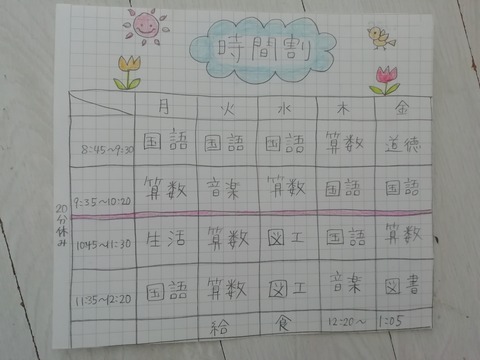 時間割
月 火 水 木 金
8:45~9:30 国語 国語 国語 算数 道徳
9:35~10:20 算数 音楽 算数 国語 国語
20分休み
10:45~11:30 生活 算数 図工 国語 算数
11:35~12:20 国語 算数 図工 音楽 図書
給食 12:20~1:05